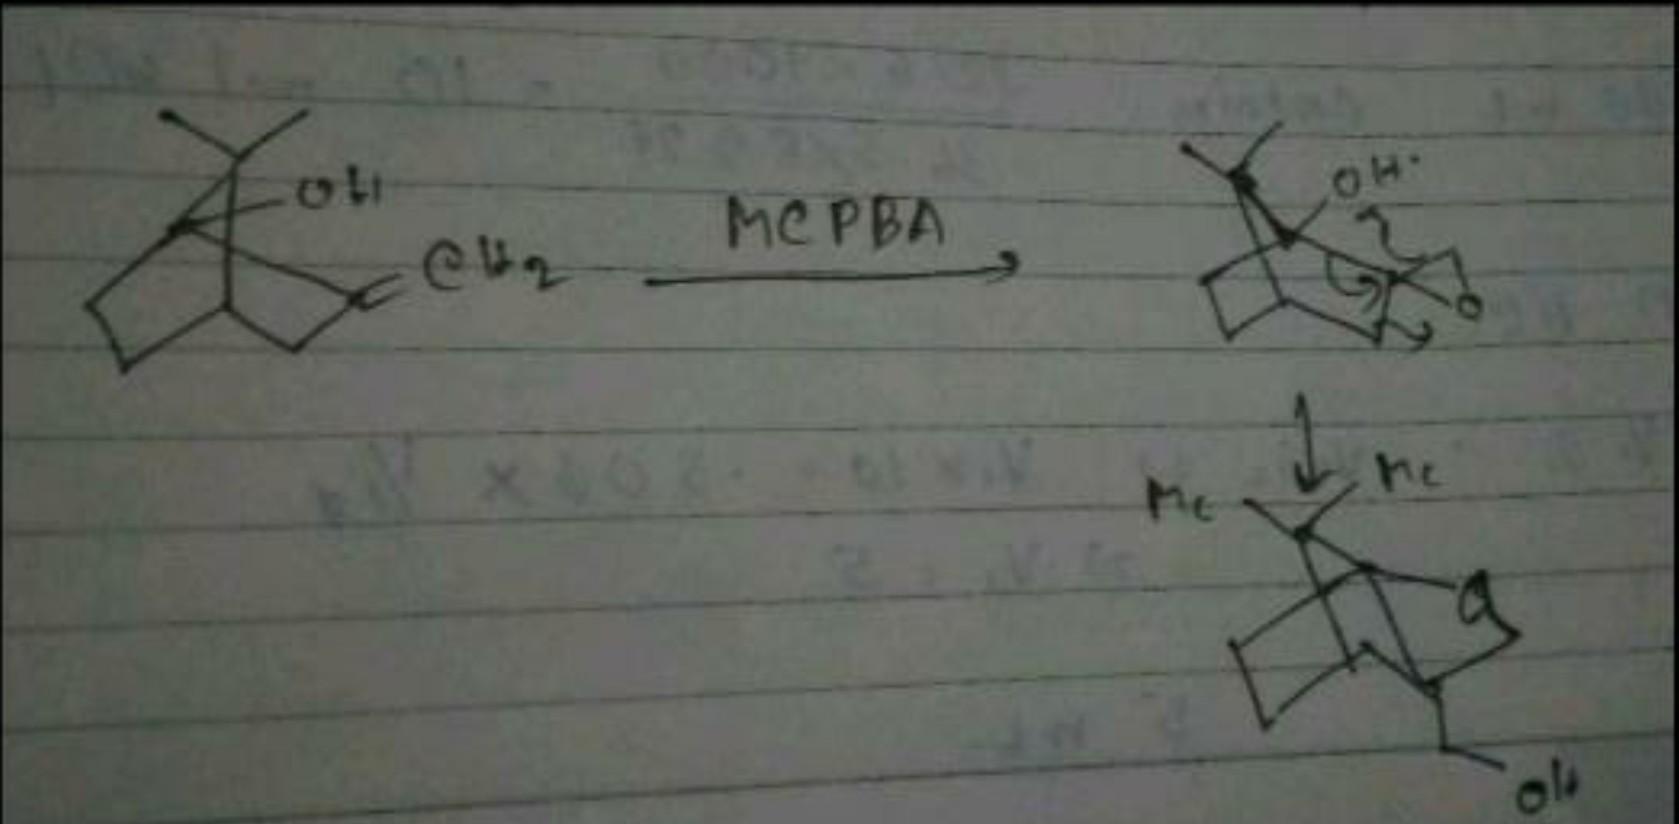 OH
CH2
MCPBA
OH
O
Me
Me
O
OH